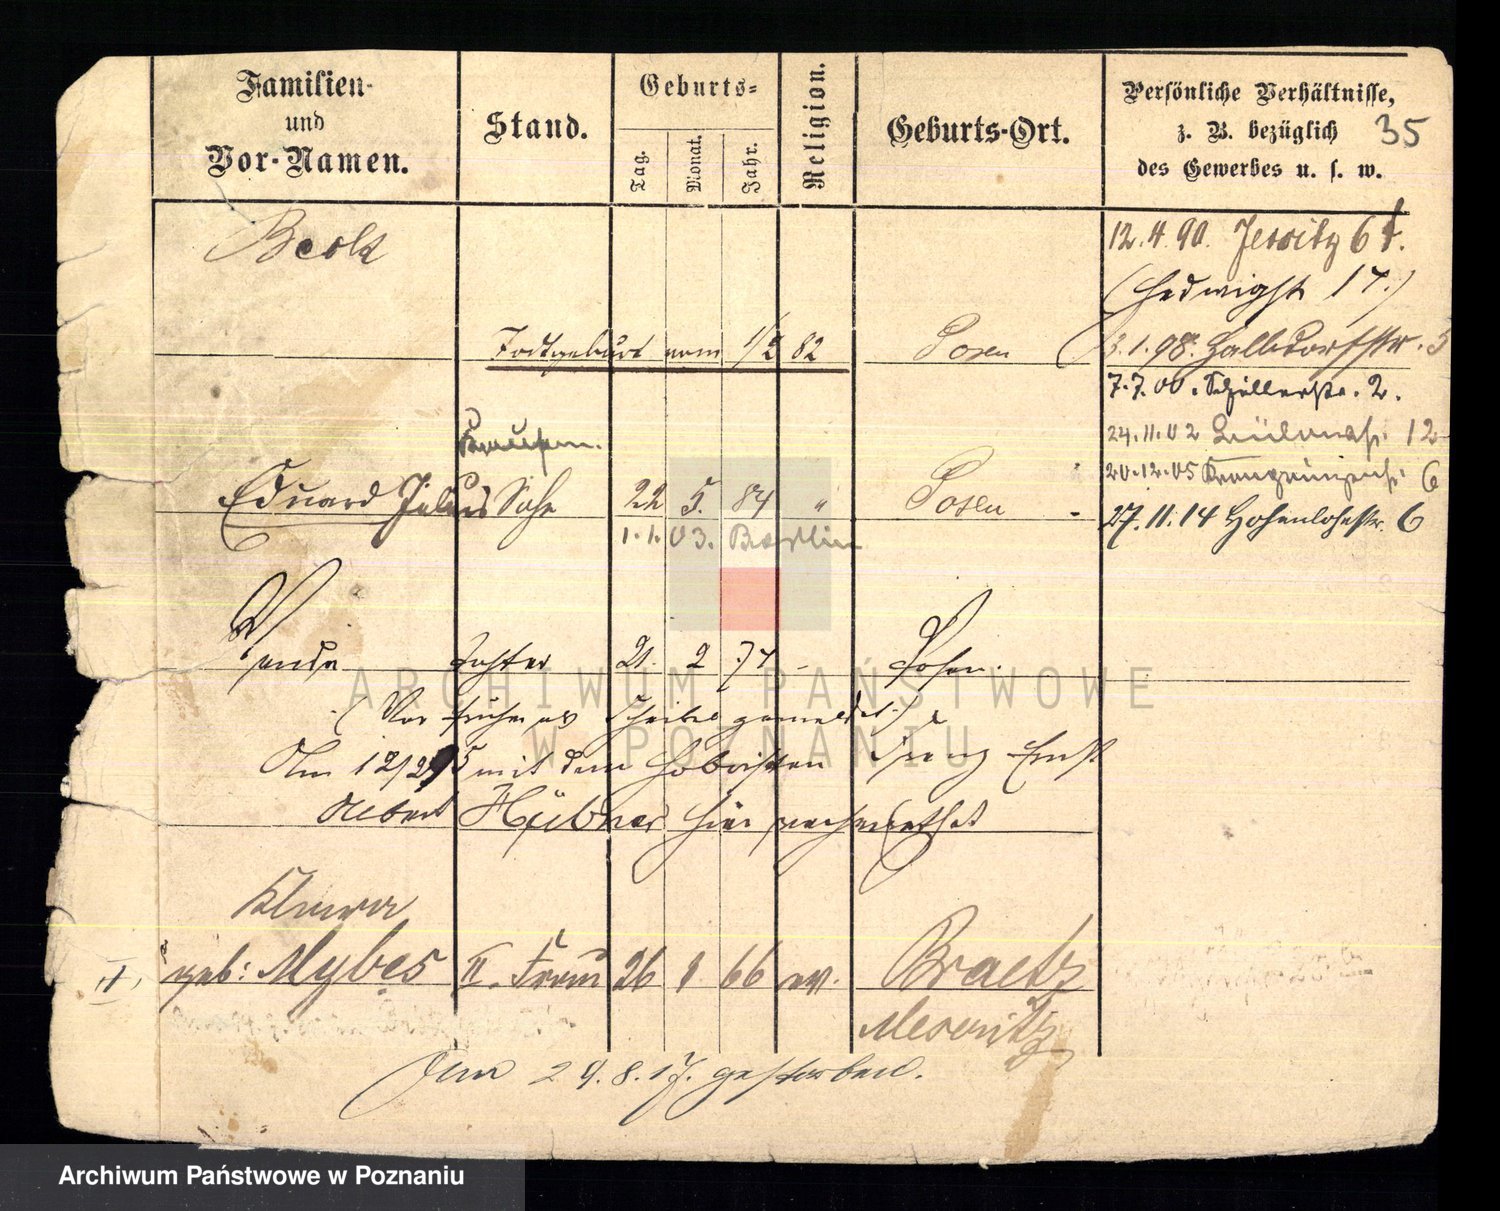 Familien-
und
Vor-Namen.
Stand.
Geburts-
Tag.
Monat.
Jahr.
Religion.
Geburts-Ort.
Persönliche Verhältnisse,
z. B. bezüglich
des Gewerbes u. s. w.
35
12.4.90. Jersitz 61.
(Hedwigstr 17.)
Todtgeburt vom 1/2 82 Posen
3.1.98. Halbdorfstr. 5
7.7.00. Schillerstr. 2.
24.11.02 12
20.12.05 6
Eduard Julius Sohn 22 5. 84 " Posen
27.11.14 Hohenlohestr. 6
1.1.03. Berlin
Wanda Tochter 21. 2 74 - Posen.
(War früher als gemeldet.)
Am 12/2 95 mit dem Hoboisten Franz Ernst
Albert Hübner hier verheirathet
Klara
II, geb: Mybes II. Frau 26 66 ev. Braetz
Meseritz
Am 29.8.17. gestorben.
ARCHIWUM PAŃSTWOWE
W POZNANIU
Archiwum Państwowe w Poznaniu